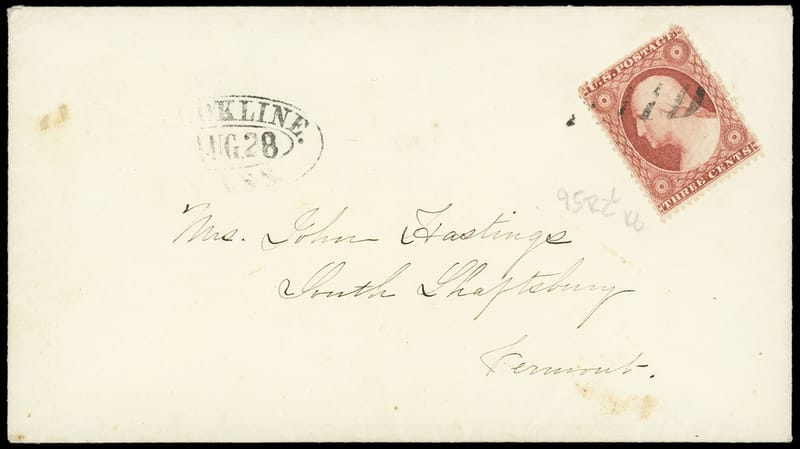 OOKLINE.
AUG.28
ASS
U.S. POSTAGE
THREE CENTS
Mrs. John Hastings
South Shaftsbury
Vermont.